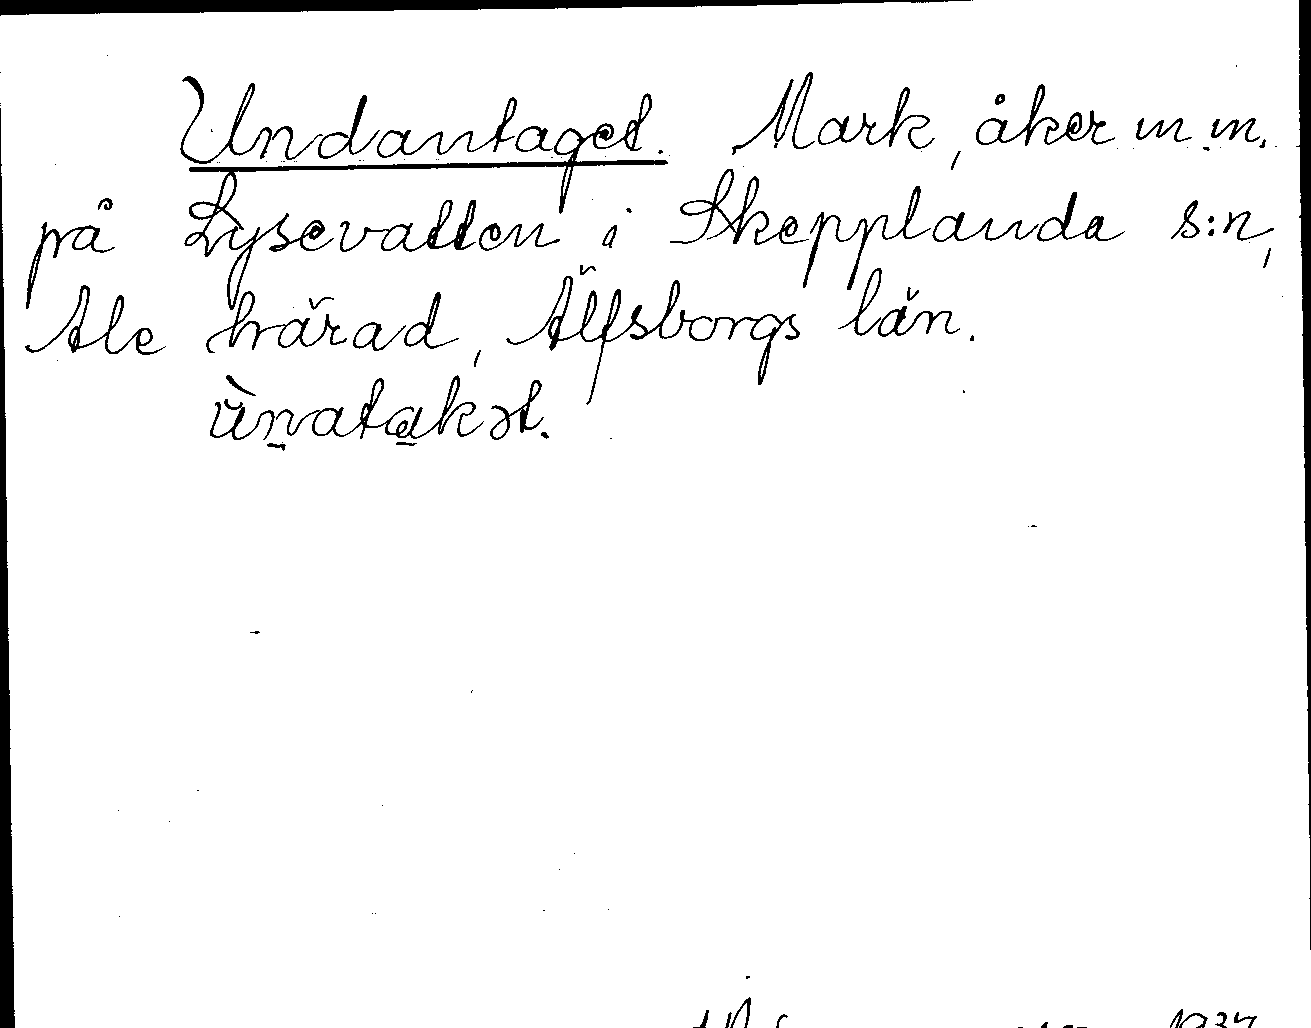 Undantaget. Mark, åker m.m.
på Lysevatten i Skepplanda s:n,
Ale härad, Älfsborgs län.
ùnatakət.
1937